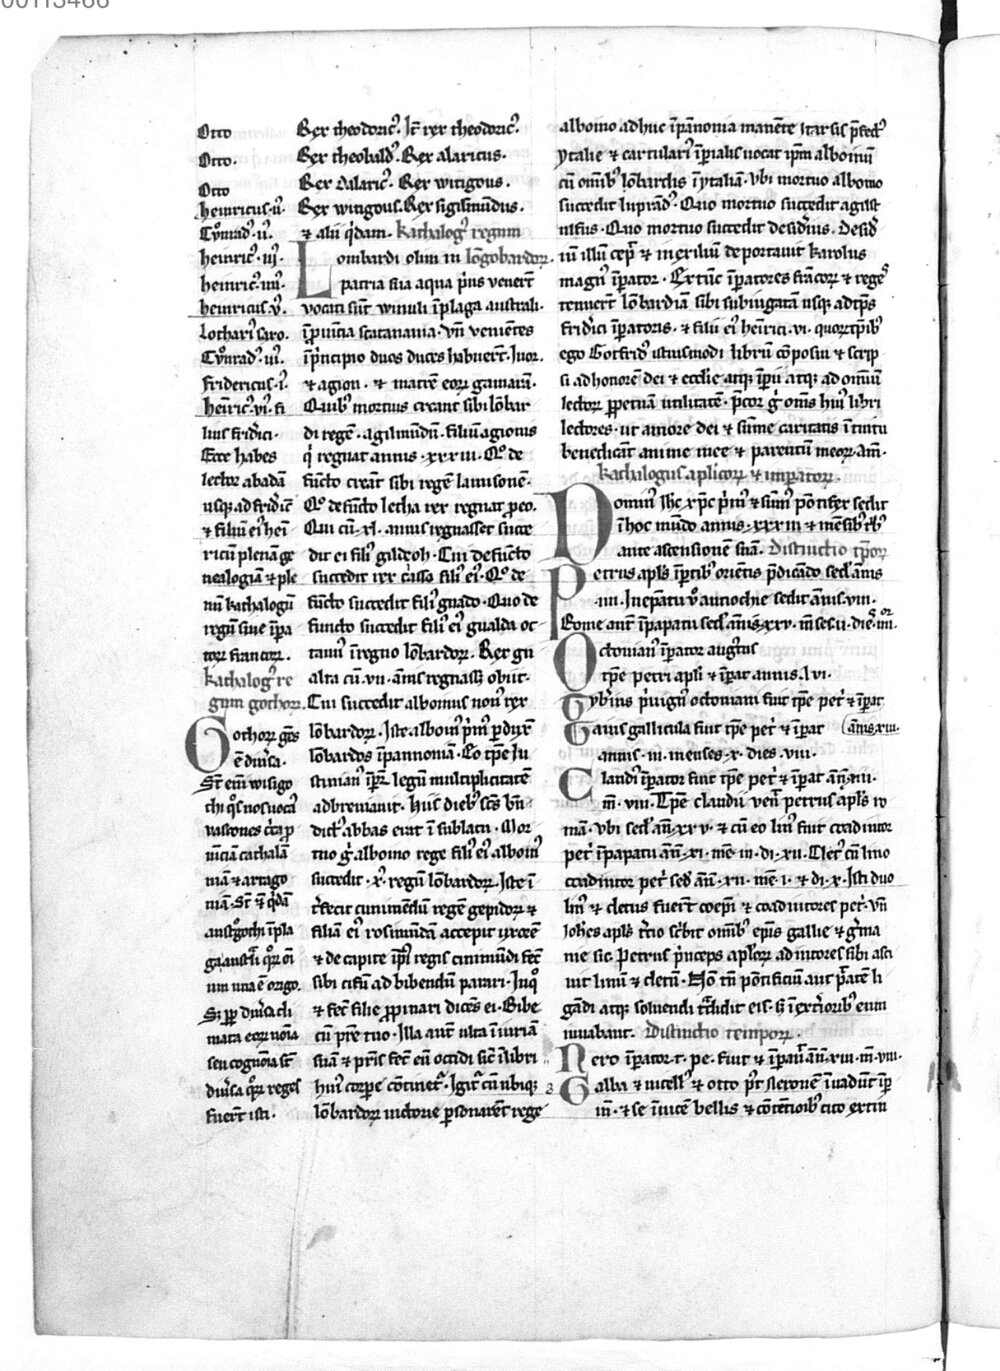 00113466
Otto
Otto.
Otto
heinricus. ii.
Cůnrad᷒. ii.
heinric᷒. iii.
heinric᷒. iiii.
heinricus. v.
Lothari᷒ saxo.
Cůnrad᷒. iii.
fridericus. i.
heinric᷒. vi. fi
lius fridici.
Ecce habes
lector abadā
usq; ad fridic̄
& filiū ei᷒ hei
ricū plenā ge
nealogiā & ple
nū kathalogū
regū siue ip̄a
toꝝ francoꝝ.
kathalog᷒ re
gum gothoꝝ.
Gothoꝝ gēs
ē diūsa.
St̄ eni wisigo
thi qͦs nos uocam᷒
wascones
uīciā cathalā
niā & arrago
niā. St̄ & q̇dā
austͦgothi ī pla
ga austͣli. qͦꝝ oī
um una ē origo.
Sꝫ ꝑ diūsa cli
mata eoꝝ noīa
seu cognoīa st̄
diūsa qͦꝝ reges
fuer̄t isti.
Rex theodoric᷒. Itē rex theodoric᷒.
Rex theobald᷒. Rex alaricus.
Rex dalaric᷒. Rex witigous.
Rex witigous. Rex sigismūdus.
& alii q̇dam. kathalog᷒ regum
Lombardi olim in lōgobardoꝝ.
patria sua aqua p̄us uener̄t
uocati sūt winuli ī plaga australi.
ī ꝓuīcia scatanauia. Vn̄ ueniētes
ī p̄ncipio duos duces habuer̄t. Iuor.
& agion. & matrē eoꝝ gamaram.
Quib᷒ mortuis creāt sibi lōbar
di regē. agilmūdū. filiū agionis
q̇ regnat annis. xxxiii. Qͦ de
fūcto creāt sibi regē lamisonē.
Qͦ defūcto lecha rex regnat ꝓ eo.
Qui cū. xl. annis regnasset succe
dit ei fili᷒ gildeoh. Cui defūcto
succedit rex cassa fili᷒ ei᷒. Qͦ de
fūcto succedit fili᷒ gnado. Quo de
functo succedit fili᷒ ei᷒ gualda oc
tau᷒ ī regno lōbardoꝝ. Rex gu
alta cū. vii. ānis regnass; obiit.
Cui succedit alboinus non᷒ rex
lōbardoꝝ. Iste alboin᷒ p̄m᷒ ꝑduxit
lōbardos ī pannoniā. Eo tp̄e Iu
stinian᷒ ip̄r legū multiplicitatē
adbreuiauit. Hiis dieb᷒ scs bn̄
dict᷒ abbas erat ī sublacu. Mor
tuo g̊ alboino rege fili᷒ ei᷒ alboin᷒
succedit. x᷒ regū lōbardoꝝ. Iste ī
t̄fecit cunimūdū regē gepidoꝝ &
filiā ei᷒ rosimūdā accepit uxorē
& de capite ip̄i᷒ regis cunimūdi fec̄
sibi cifū ad bibendū parari. In qͦ
& fec̄ filie ꝓpinari dicēs ei. Bibe
cū pr̄e tuo. Illa aut̄ ulta ī iuriā
suā & pr̄is fec̄ eū occidi sic̄ ī libri
hui᷒ corpe cōtinet᷒. Igit᷒ cū ubiq;
lōbardoꝝ uictorie ꝑsonarēt rege
alboino adhuc ī pānonia manēte Narsis p̄fect᷒
ytalie & cartulari᷒ īꝑialis uocat ip̄m alboinū
cū omīb᷒ lōbardis ī ytaliā. Vbi mortuo alboino
succedit luprād᷒. Quo mortuo succedit agist
ulfus. Quo mortuo succedit desidi᷒us. Desid̄i
um illū cep̄t & in exiliū deportauit karolus
magn᷒ īꝑator. Ex tūc īꝑatores frācoꝝ & reges
tenuer̄t lōbardiā sibi subiugatā usq; ad tp̄s
fridici īꝑatoris. & filii ei᷒ heīrici. vi. quoꝝ tp̄ib᷒
ego Gotfrid᷒ istiusmodi librū cōposui & scrip
si ad honorē dei & ecclie atq; īꝑii atq; ad omniū
lectoꝝ ꝑpetuā utilitatē. p̄cor g̊ om̄s hui᷒ libri
lectores. ut amore dei & sūme caritatis ītuitu
benedicāt anime mee & parentū meoꝝ. am̄.
kathalogus aplicoꝝ & imꝑatoꝝ.
Domin᷒ ihc xp̄c p̄m᷒ & sūm᷒ pōtifex sedit
ī hoc mūdo annis. xxxiii & mēsib᷒ t̄b᷒
ante ascensionē suā. Distinctio tp̄oꝝ
Petrus apl̄s ī ꝑtib᷒ oriētis p̄dicādo sed. ānis
iiii. In epatu ū antiochie sedit ānis. viii.
Rome aut̄ ī papatu sed. ānis xxv. mēses. ii. dies. iii.
Octonian᷒ īꝑator augustus
tp̄e petri apli & īꝑat annis. lvi.
Tyberius p̄uign᷒ octoniani fuit tp̄e petri & īꝑat
Gaius gallicula fuit tp̄e petri & īꝑat (ānis xxiii.
annis. iii. menses. x. dies. viii.
Claudi᷒ īꝑator fuit tp̄e petri & īꝑat ān. xiii.
m̄. viii. Tp̄e claudii uen̄ petrus apl̄s ro
mā. vbi sed. ān. xxv. & cū eo lin᷒ fuit coadiutor
petri ī papatu ān. xi. mē. iii. di. xii. Clet᷒ cū lino
coadiutor petri sed̄ ān. xii. mē. i. & di. x. Isti duo
lin᷒ & cletus fuer̄t coep̄i & coadiutores petri. Vn̄
ioh̄es apl̄s t̄cio sc̄bit omīb᷒ ep̄is gallie & g̊ma
nie sic. Petrus p̄nceps aploꝝ adiutores sibi asci
uit linū & cletū. Nō tn̄ pōtificiū aut p̄atē li
gādi atq; soluendi t̄didit eis. s; ī ext̄iorib᷒ eum
iuuabant. Distinctio tempoꝝ.
Nero īꝑator. t. pe. fuit & īꝑauit ān. xiii. m̄. viii.
Galba & uitell᷒ & otto p᷒t Neronē īuadūt iꝑ
iū. & se īuicē bellis & cōtētioīb᷒ cito extin